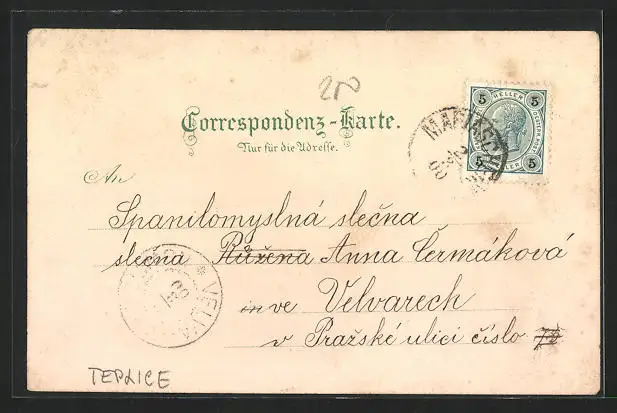 20
Correspondenz-Karte.
Nur für die Adresse.
5 HELLER 5
5 5
MARIASCH
00
An
Spanilomyslná slečna
slečna Růžena Anna Čermáková
in ve Velvarech
v Pražské ulici číslo 73
VELVA
00
TEPLICE